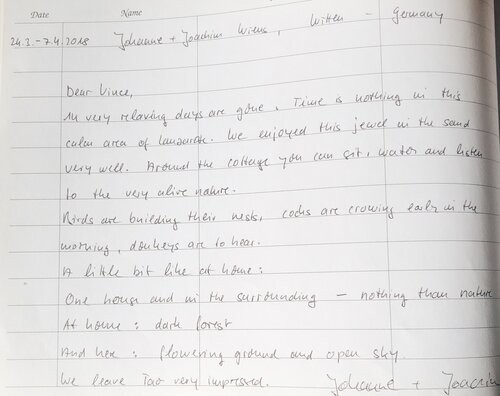 Date Name
24.3.-7.4.2018 Johanne + Joachim Wiens, Witten - Germany
Dear Vince,
14 very relaxing days are gone. Time is nothing in this
calm area of Lanzarote. We enjoyed this jewel in the sand
very well. Around the cottage you can sit, water and listen
to the very alive nature.
Birds are building their nests, cocks are crowing early in the
morning, donkeys are to hear.
A little bit like at home:
One house and in the surrounding - nothing than nature
At home: dark forest
And here: flowering ground and open sky
We leave Tao very impressed. Johanne + Joachim